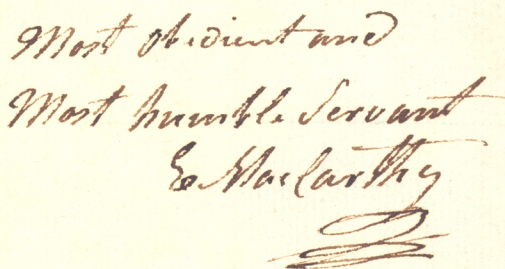 Most obedient and
Most humble Servant
E MacCarthy